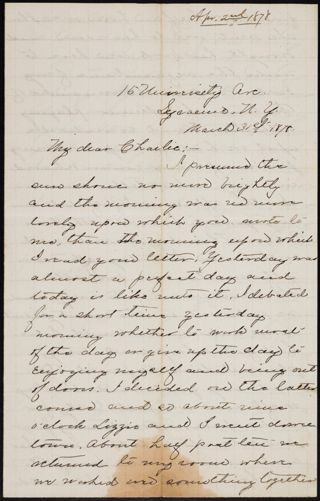 Apr. 2nd 1878
15 University Ave
Syracuse N. Y
March 31st 1878.
My dear Charlie:-
I presume the
sun shone no more brightly
and the morning was no more
lovely upon which you wrote to
me, than the morning upon which
I read your letter. Yesterday was
almost a perfect day and
today is like unto it. I debated
for a short time yesterday
morning whether to work most
of the day or give up the day to
enjoying myself and being out
of doors. I decided on the latter
course and so about nine
o'clock Lizzie and I went down
town. About half past ten we
returned to my room where
we worked on something together